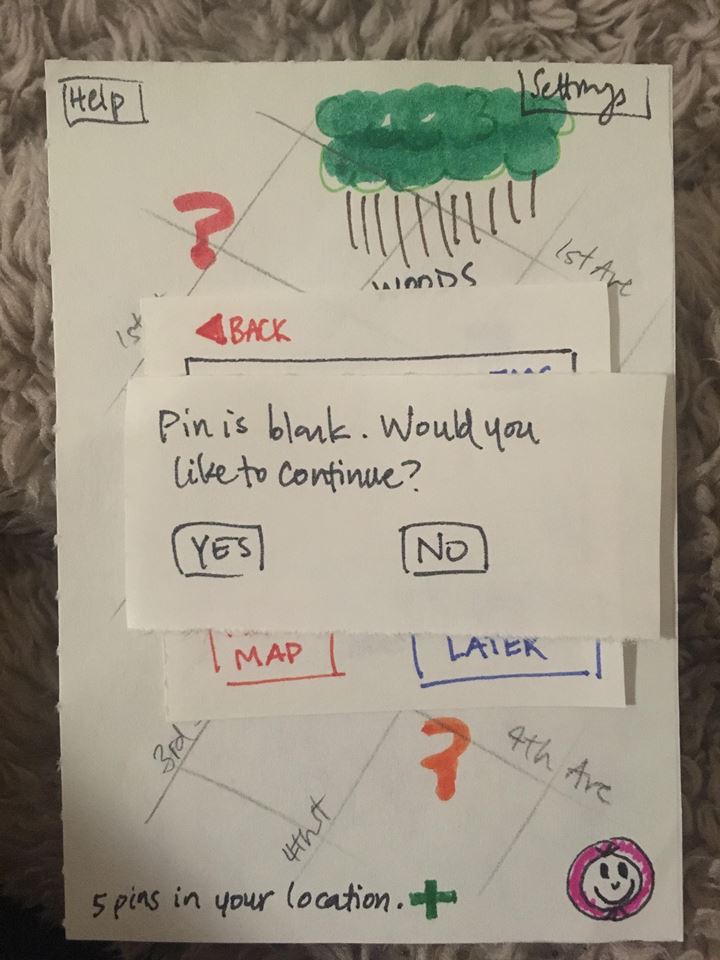 Help
Settings
?
1st Ave
WOODS
1st
BACK
Pin is blank. Would you
like to continue?
YES
NO
MAP
LATER
3rd
?
4th Ave
4th st
5 pins in your location. +